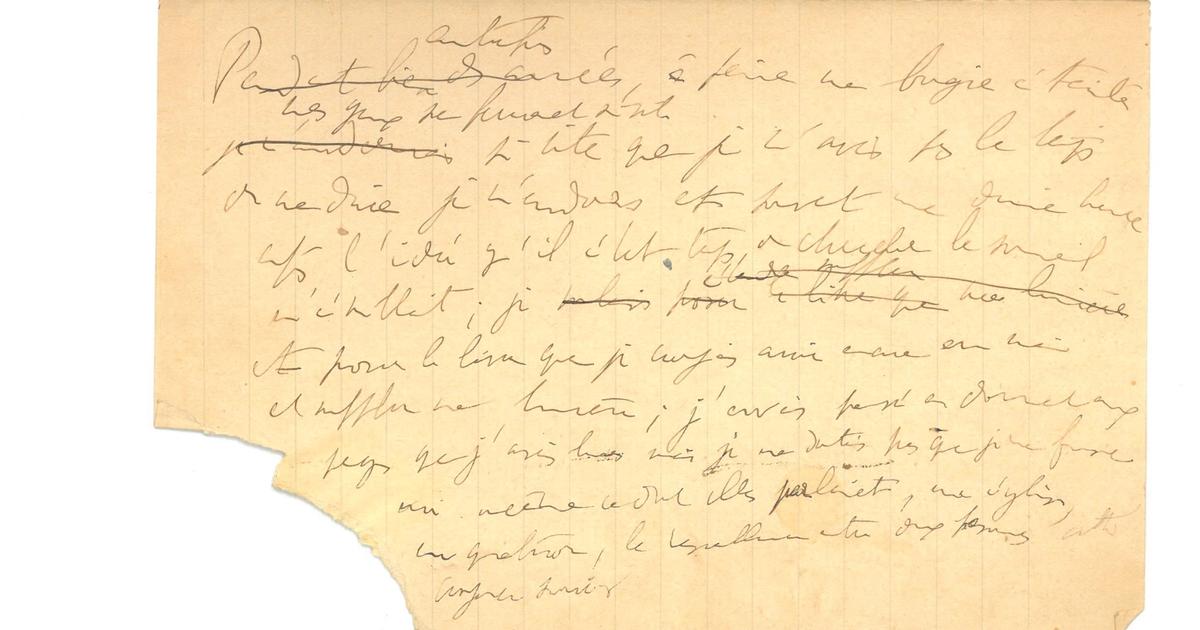 autrefois
Pendant bien des années, à peine ma bougie éteinte
mes yeux se fermaient
je m'endormais si vite que je n'avais pas le temps
de me dire je m'endors et souvent une demie heure
après l'idée qu'il était temps de chercher le sommeil
et de souffler
m'éveillait ; je voulais poser le livre que
et poser le livre que je croyais avoir encore en main
et souffler ma lumière ; j'avais pensé en dormant aux
pages que j'avais lues mais je ne doutais pas que je ne fusse
moi même ce dont elles parlaient, une église,
un quatuor, la entre deux femmes cette